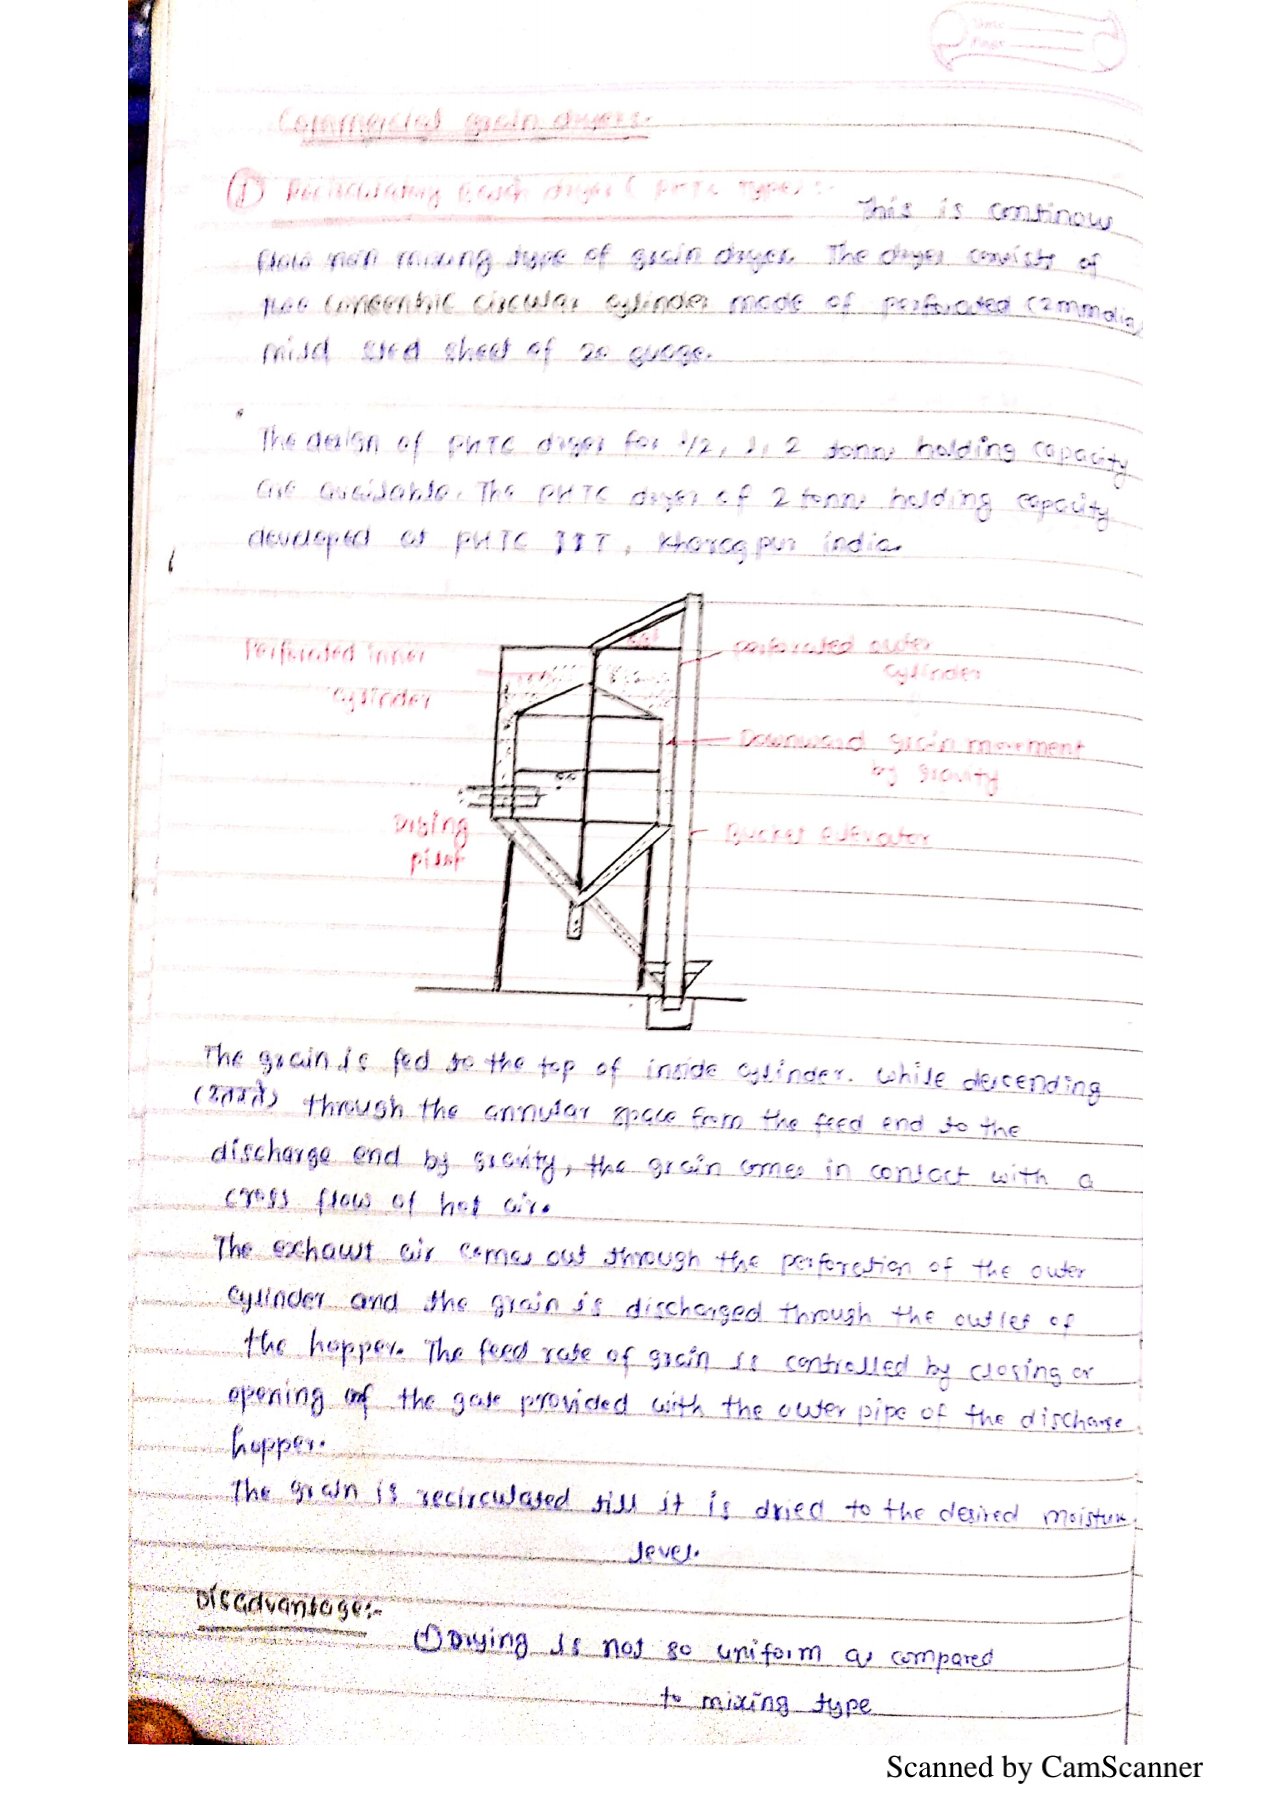 Date
Page
Commercial grain dryers:-
① Recirculating Batch dryer ( PHTC Type) :-
This is continous
flow non mixing type of grain dryer. The dryer consists of
two concentric circular cylinder made of perforated (2mm dia)
mild steel sheet of 20 guage.
The design of PHTC dryer for 1/2, 1, 2 tonne holding capacity
are available. The PHTC dryer of 2 tonne holding capacity
developed at PHTC IIT, Kharagpur india.
Perforated inner
cylinder
perforated outer
cylinder
Downward grain movement
by gravity
pipe
Bucket elevator
The grain is fed to the top of inside cylinder. while descending
through the annular space from the feed end to the
discharge end by gravity, the grain comes in contact with a
cross flow of hot air.
The exhaust air comes out through the perforation of the outer
cylinder and the grain is discharged through the outlet of
the hopper. The feed rate of grain is controlled by closing or
opening of the gate provided with the outer pipe of the discharge
hopper.
The grain is recirculated till it is dried to the desired moisture
level.
Disadvantage:-
① Drying is not so uniform as compared
to mixing type
Scanned by CamScanner